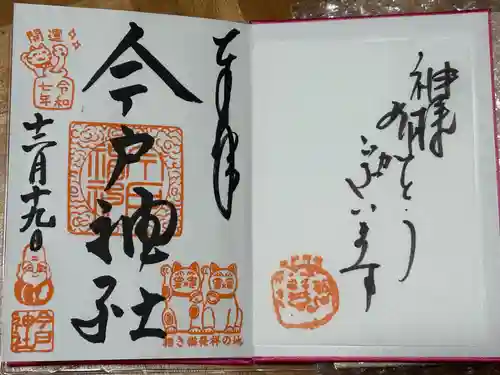 神様
有がとう
ございます
奉拝
今戸神社
招き猫發祥の地
開運
令和
七年
十二月十九日
今戸
神社